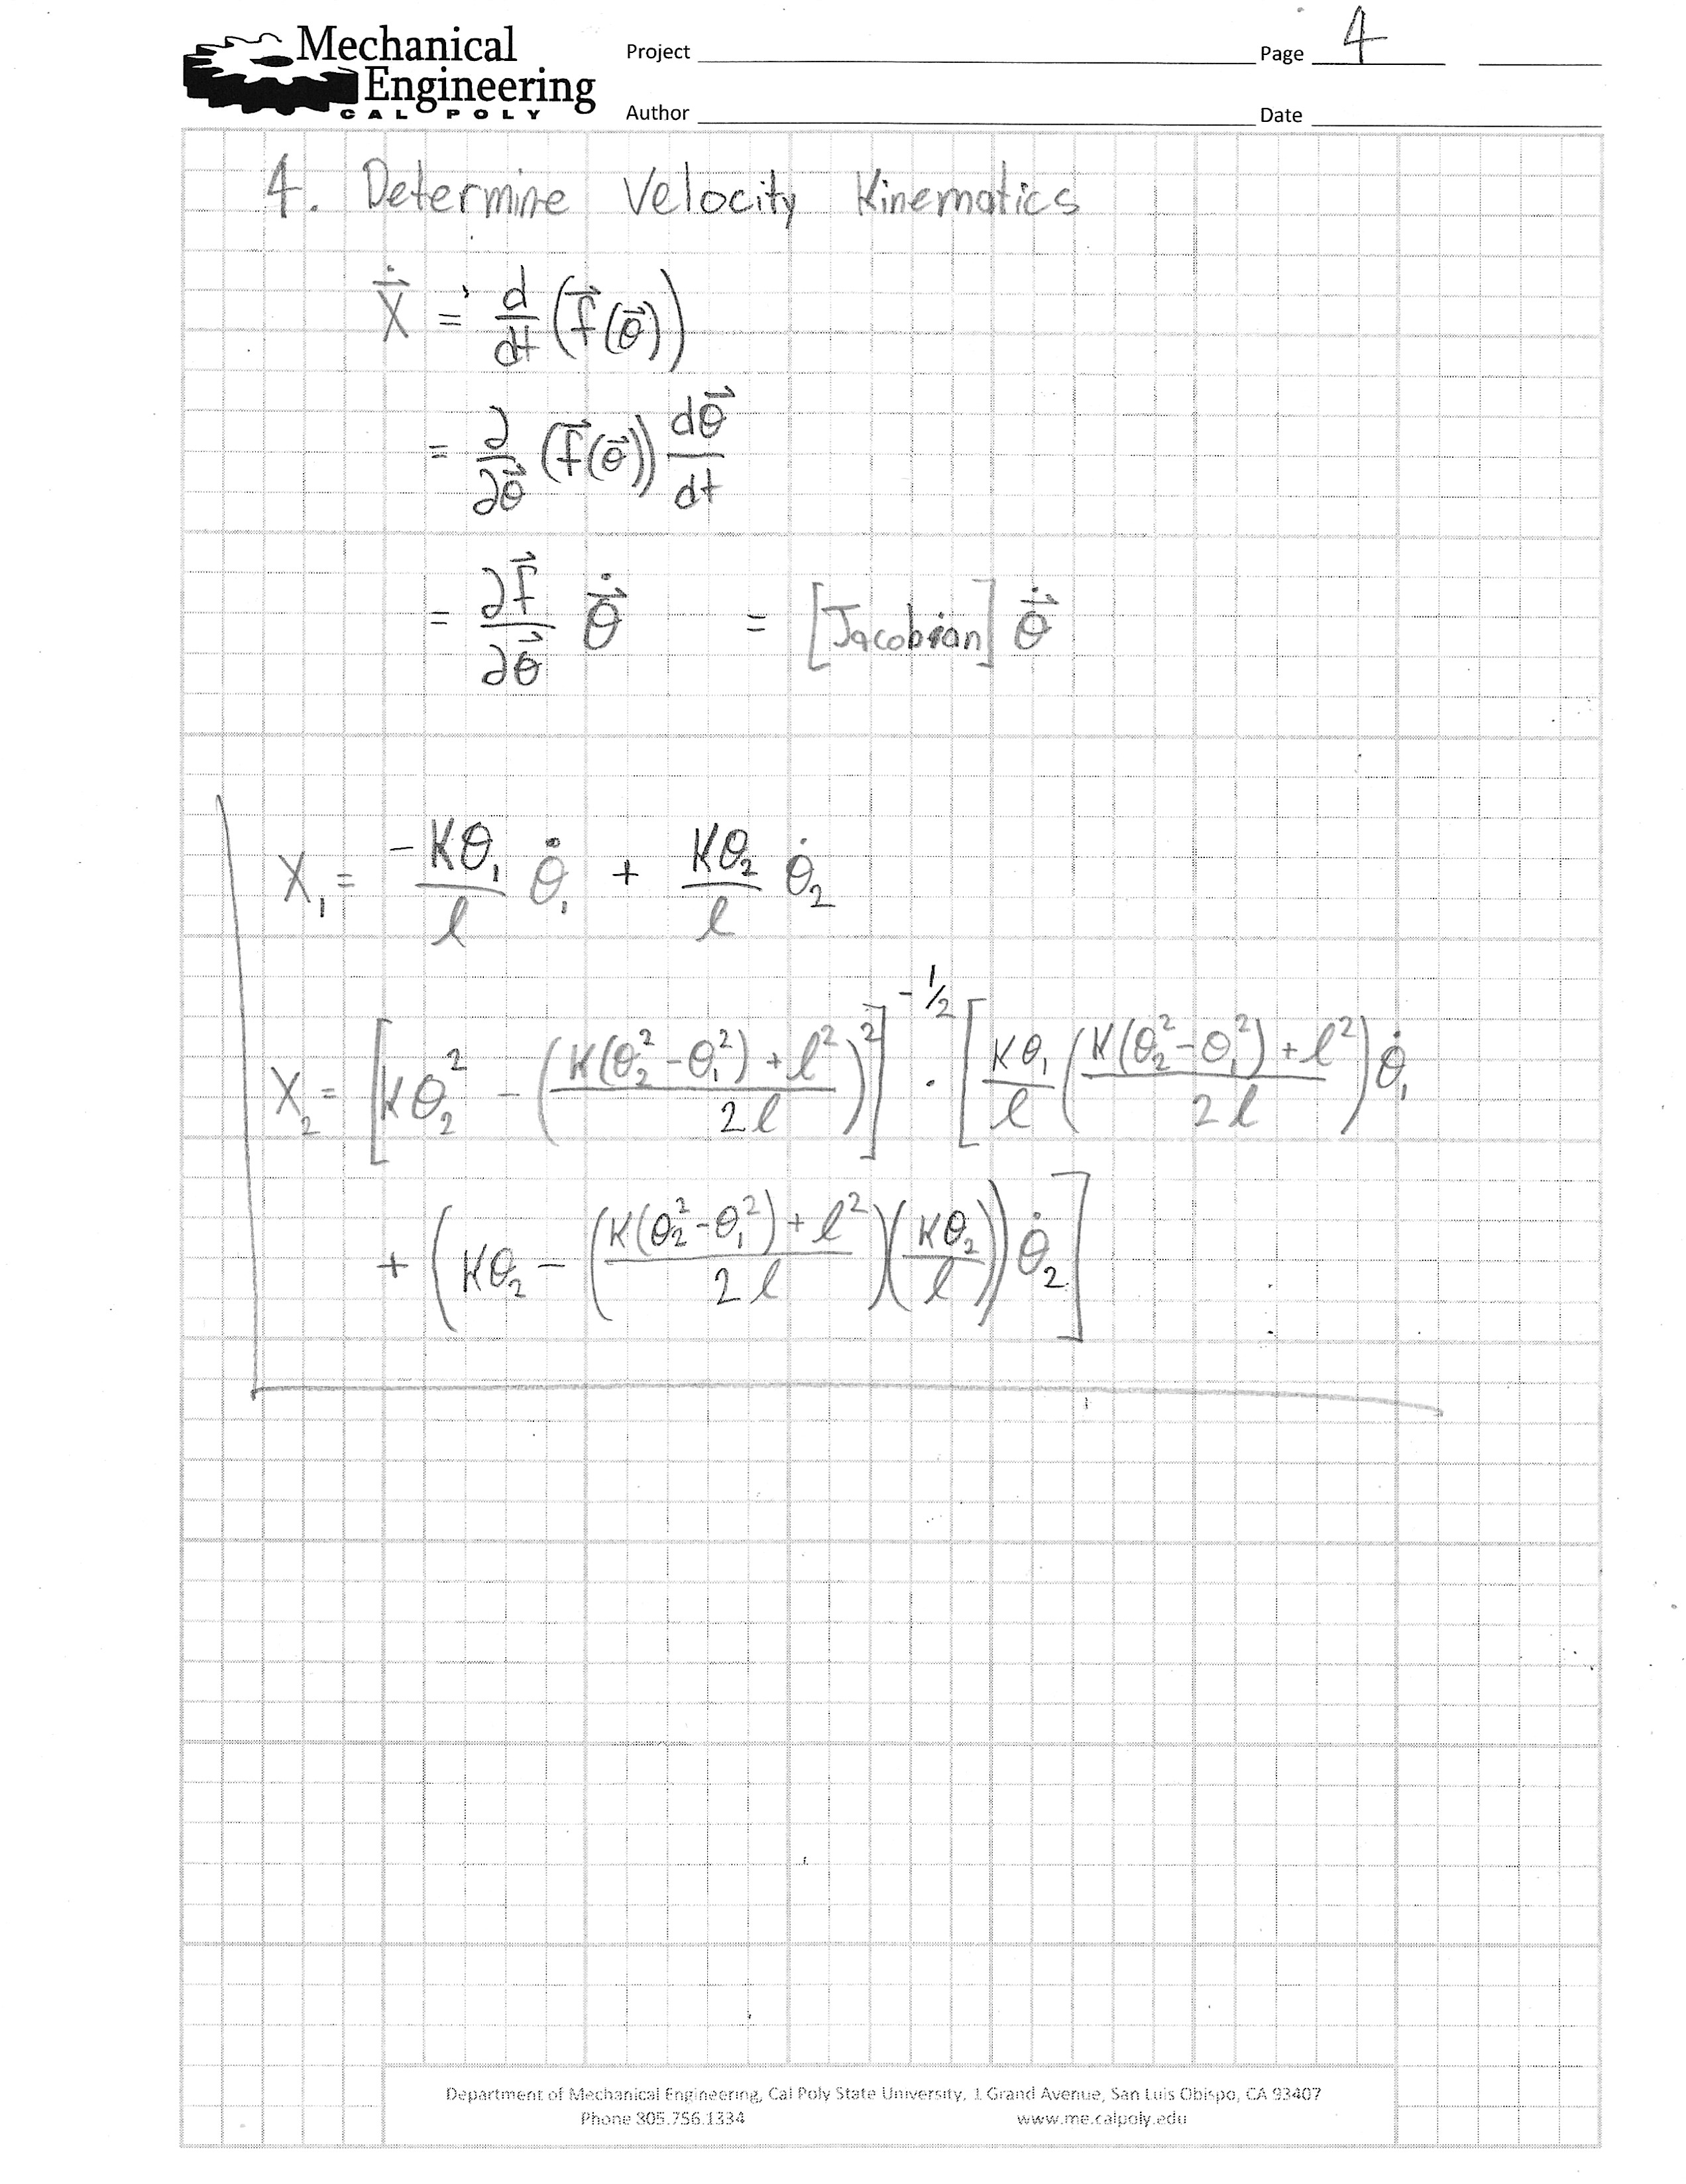 Mechanical
Engineering
CAL POLY
Project
Page 4
Author
Date
4. Determine Velocity Kinematics
$\dot{\vec{X}} = \frac{d}{dt}\left(\vec{f}(\vec{\theta})\right)$
$= \frac{\partial}{\partial\vec{\theta}}\left(\vec{f}(\vec{\theta})\right)\frac{d\vec{\theta}}{dt}$
$= \frac{\partial\vec{f}}{\partial\vec{\theta}}\dot{\vec{\theta}} = [\text{Jacobian}]\dot{\vec{\theta}}$
$X_1 = \frac{-K\theta_1}{l}\dot{\theta}_1 + \frac{K\theta_2}{l}\dot{\theta}_2$
$X_2 = \left[K\theta_2^2 - \left(\frac{K(\theta_2^2-\theta_1^2)+l^2}{2l}\right)^2\right]^{-1/2} \cdot \left[\frac{K\theta_1}{l}\left(\frac{K(\theta_2^2-\theta_1^2)+l^2}{2l}\right)\dot{\theta}_1\right.$
$\left.+ \left(K\theta_2 - \left(\frac{K(\theta_2^2-\theta_1^2)+l^2}{2l}\right)\left(\frac{K\theta_2}{l}\right)\right)\dot{\theta}_2\right]$
Department of Mechanical Engineering, Cal Poly State University, 1 Grand Avenue, San Luis Obispo, CA 93407
Phone 805.756.1334 www.me.calpoly.edu